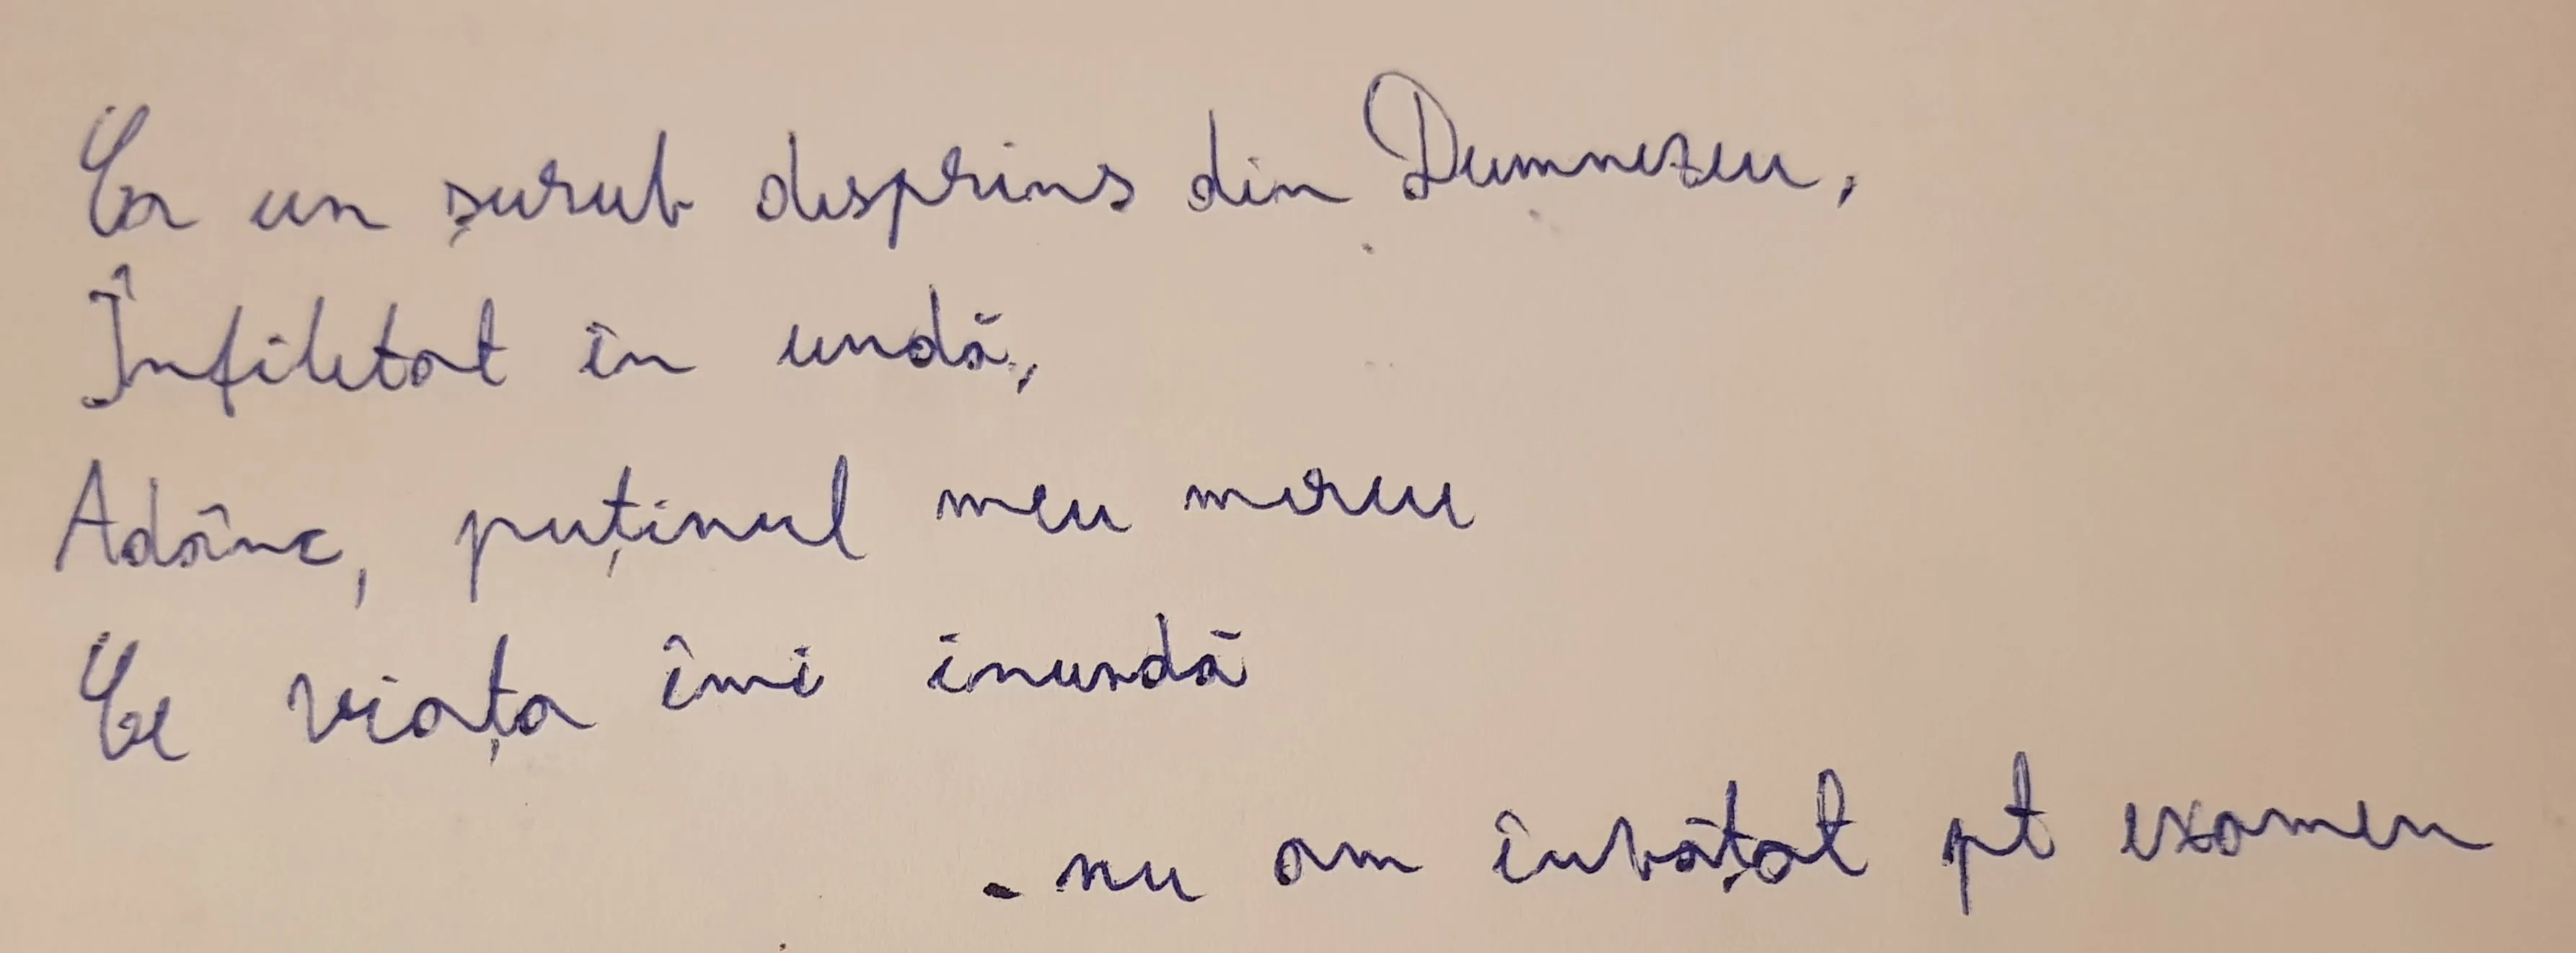 Ca un șurub desprins din Dumnezeu,
Înfiletat în undă,
Adânc, puținul meu mereu
Ce viața îmi inundă
- nu am învățat pt examen